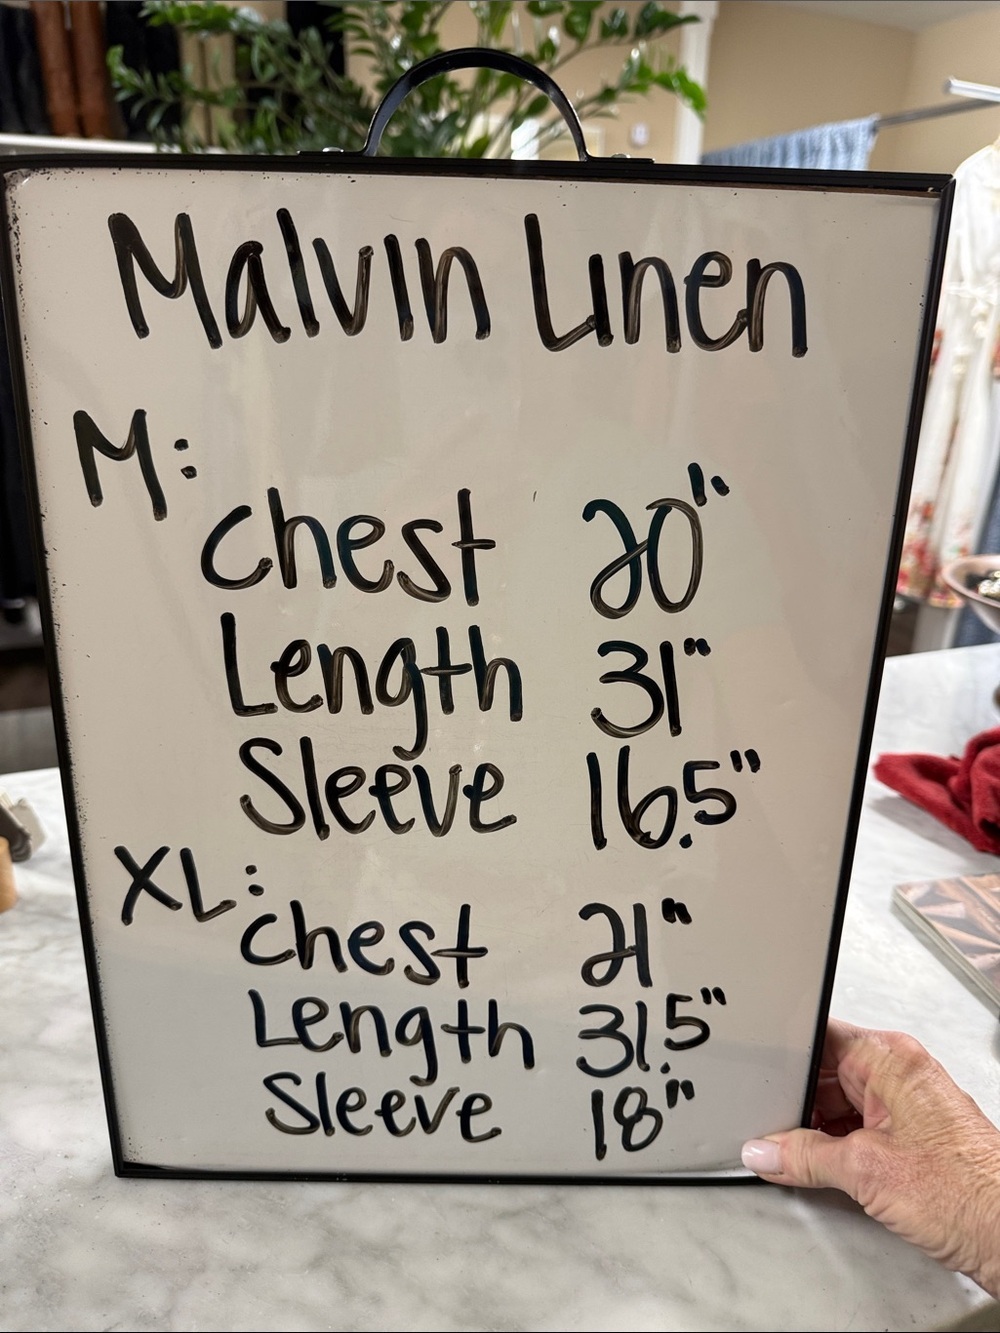 Malvin Linen
M:
Chest 20"
Length 31"
Sleeve 16.5"
XL:
Chest 21"
Length 31.5"
Sleeve 18"